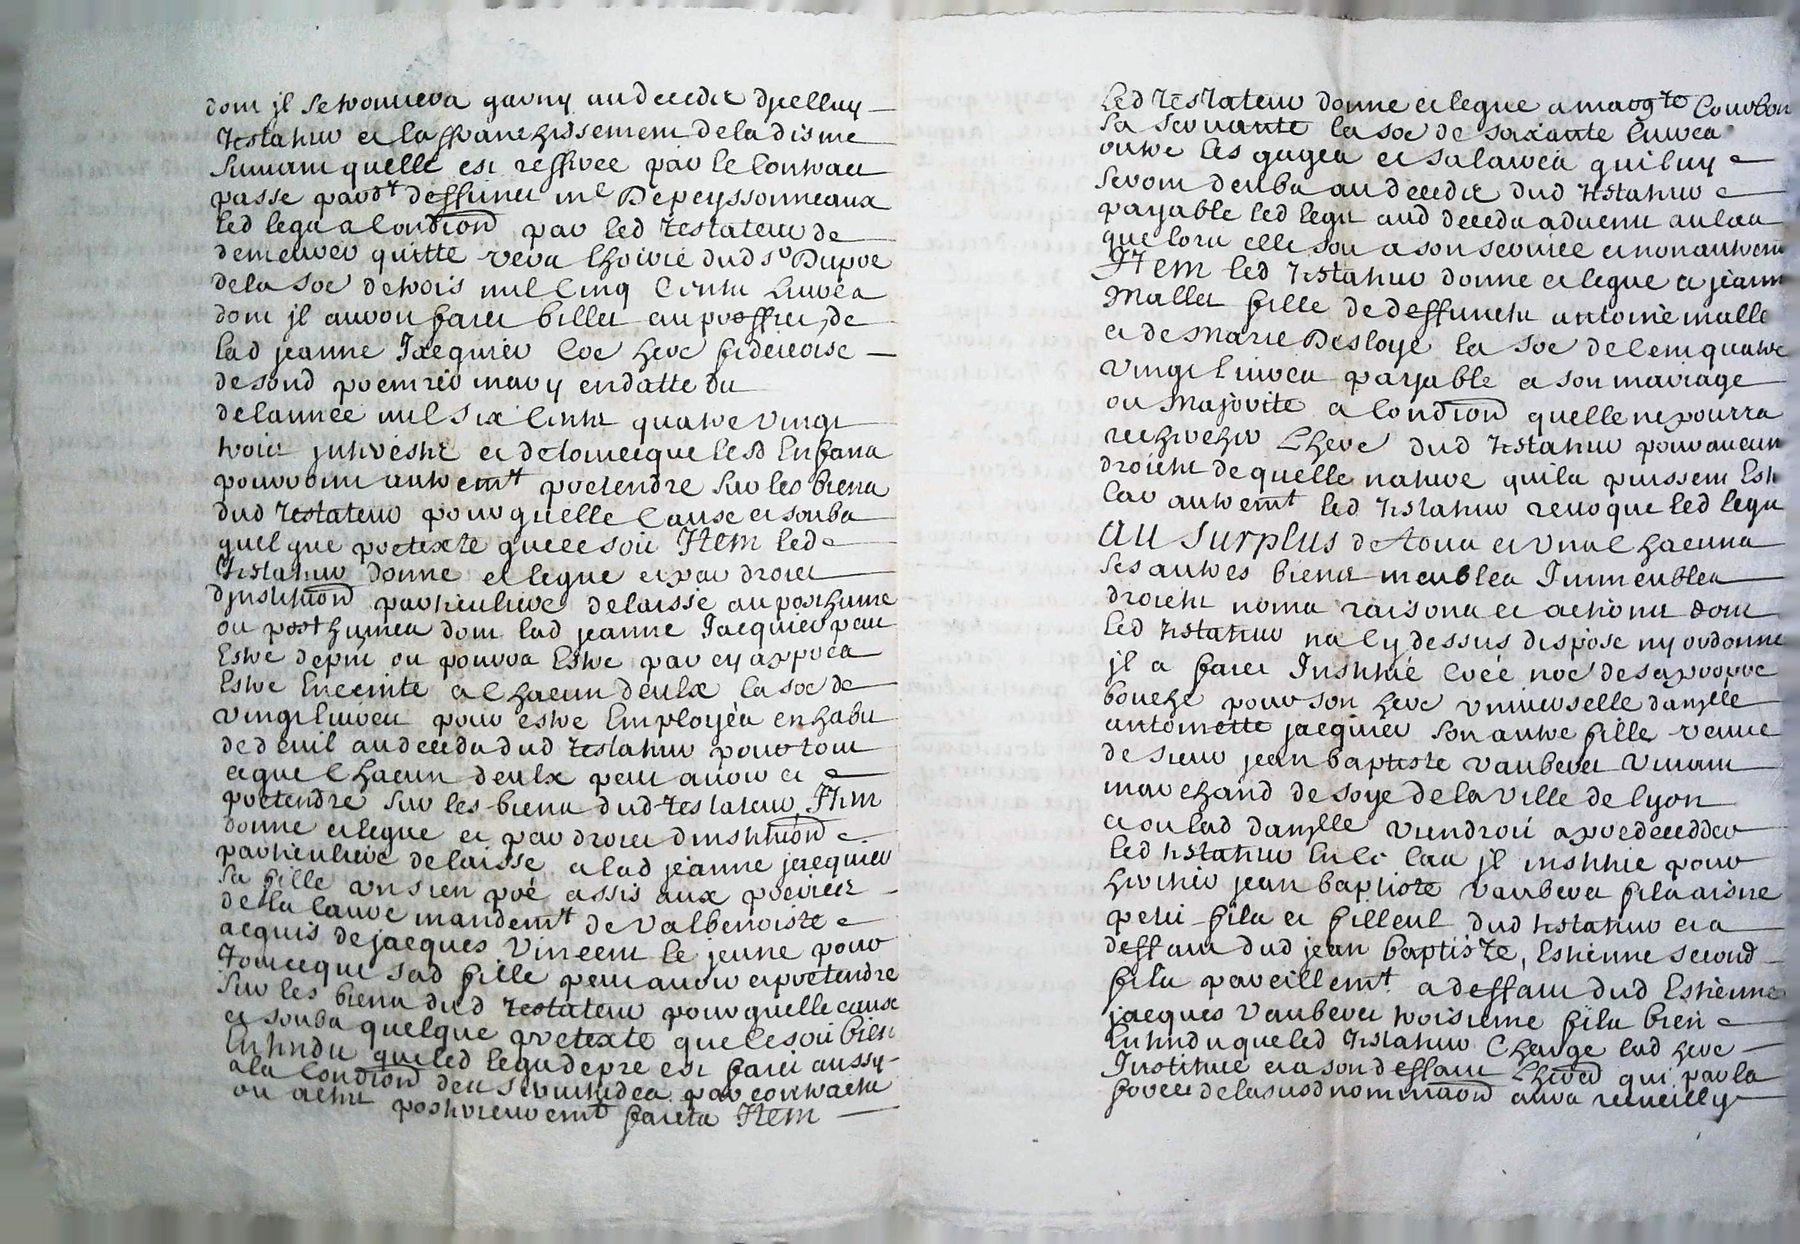 dont jl se trouuera garny au decedz djcelluy
testateur et laffranchissement de la disme
suiuant quelle est reseruee par le contract
passe pardt deffunct me Depeyssonneaux
led legat a condion par led testateur de
demeurer quitte vers lhoirie dud sr Dupre
de la soe de trois mil cinq cents liures
dont jl auroit faict billet au proffict de
lad jeanne Jacquier coe here fiducoise
de sond premier mary en datte du
de lannee mil six cents quatre vingt
trois juhreste et de tout ce que lesd Enfans
pourroint autremt pretendre sur les biens
dud testateur pour quelle cause et soubs
quel que pretexte que ce soit Item led
testateur donne et legue et par droict
djnstituion particuliere delaisse au posthume
ou posthumes dont lad jeanne Jacquier peut
Estre depnt ou pourra Estre par cy appres
Estre Enceinte a chacun deulx la soe de
vingt liures pour estre Employes en habit
de deuil au decedz dud testateur pour tout
ce que chacun deulx peut auoir et
pretendre sur les biens dud testateur, Item
donne et legue et par droict dinstituion
particuliere delaisse a lad jeanne jacquier
sa fille vn sien pré assis aux
de la mandemt de Valbenoiste
acquis de jacques Vincent le jeune pour
tout ce que sad fille peut auoir et pretendre
sur les biens dud testateur pour quelle cause
et soubs quelque pretexte que ce soit bien
Entendu que led legat de pre est faict aussy
a la condion des seruitudes par contracts
ou actes posterieuremt faicts Item
Led testateur donne et legue a margte Courbon
sa seruante la soe de soixante liures
outre les gages et salaires qui luy
seront deubs au decedz dud testateur
payable led legat aud decedz aduenu au cas
que lors elle soit a son seruice et non autremt
Item led testateur donne et legue a jeanne
Mallet fille de deffuncts antoine mallet
et de Marie Desloye la soe de cent quatre
vingt liures payable a son mariage
ou Majorité a condion quelle ne pourra
rechercher Lhere dud testateur pour aucun
droicts de quelle nature quils puissent Estre
Car autremt led testateur reuoque led legat
au surplus de tous et vns chacuns
ses autres biens meubles Immeubles
droicts noms raisons et actions dont
led testateur na cy dessus dispose ny ordonne
jl a faict Institué creé noé de sa propre
bouche pour son here vniuerselle damlle
antoinette jacquier son autre fille veuue
de sieur jean baptiste vanberet viuant
marchand de soye de la ville de lyon
et ou lad damlle viendroit a predecedder
led testateur En ce cas jl institue pour
heritier jean baptiste vanberet fils aisne
petit fils et filleul dud testateur et a
deffaut dud jean baptiste, Estienne second
fils pareillemt a deffaut dud Estienne
jacques Vanberet troisieme fils bien
Entendu que led testateur Charge lad here
Instituee et a son deffaut Lhered qui par la
force de la susd nominaon aura recueilly